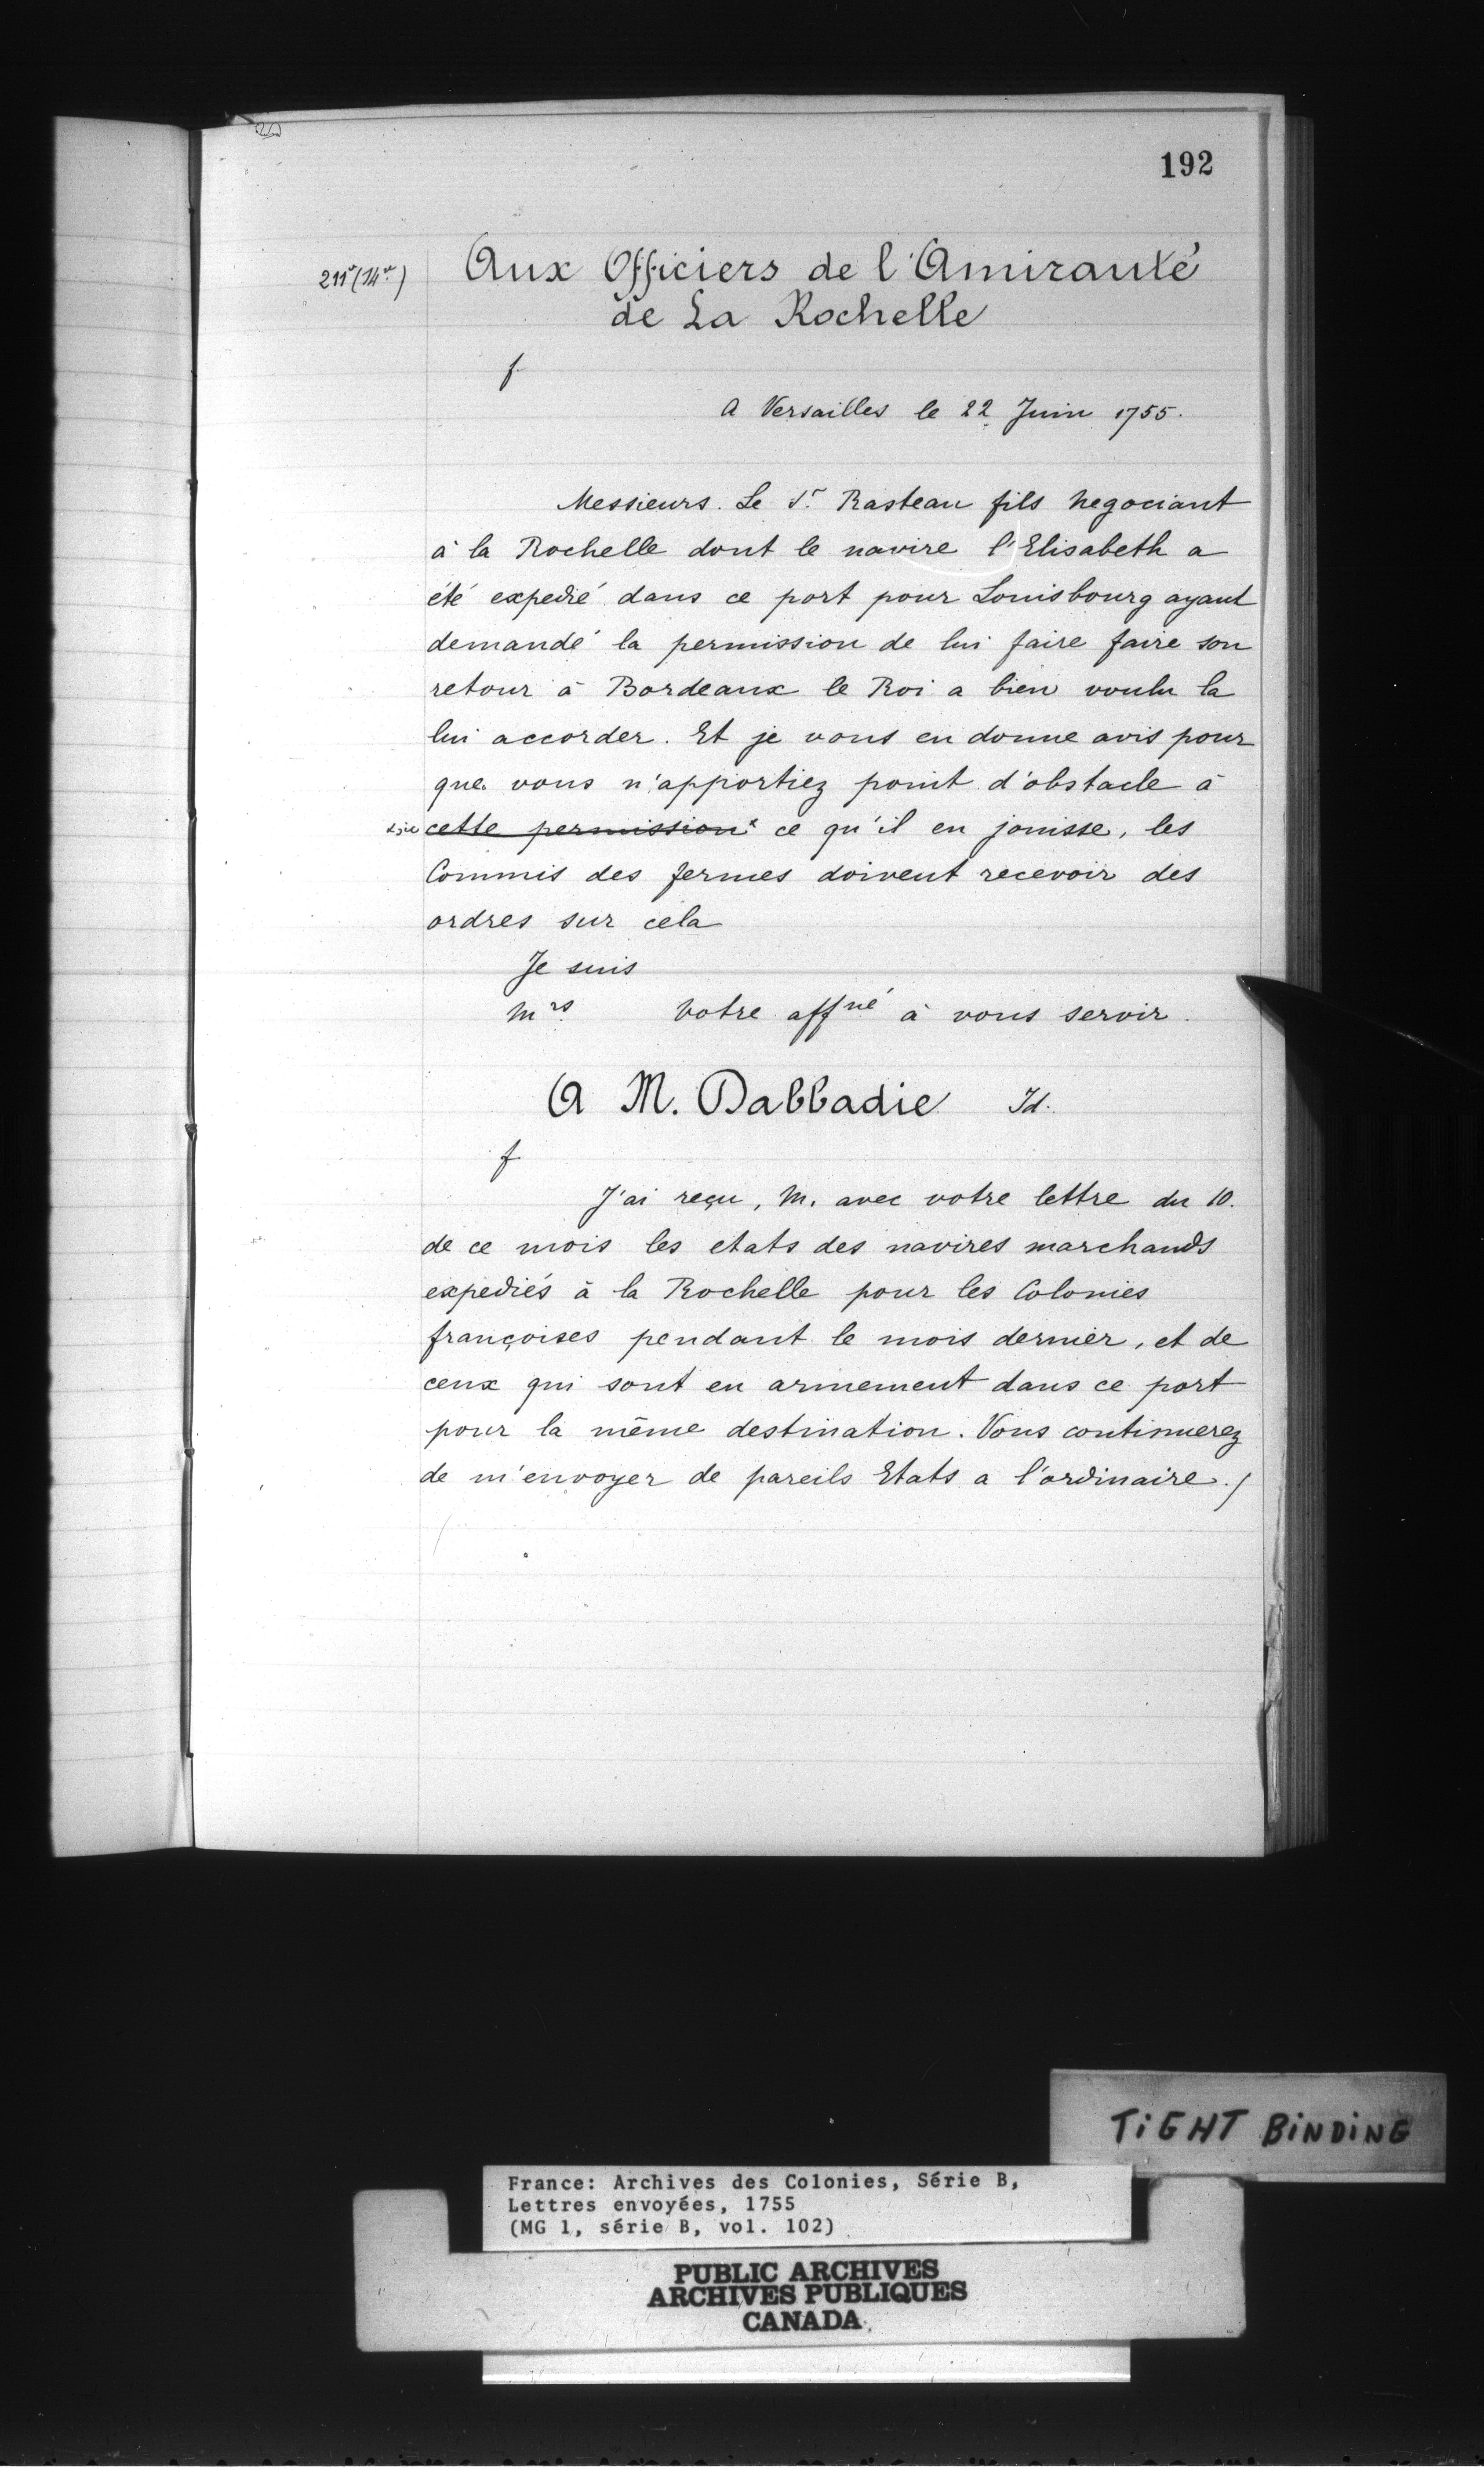 192
Aux Officiers de l'Amirauté
de La Rochelle
f
A Versailles le 22 Juin 1755.
Messieurs. Le Sr. Rasteau fils Negociant
à la Rochelle dont le navire l'Elisabeth a
été expedié dans ce port pour Louisbourg ayant
demandé la permission de lui faire faire son
retour à Bordeaux le Roi a bien voulu la
lui accorder. Et je vous en donne avis pour
que vous n'apportiez point d'obstacle à
x sic cette permission x ce qu'il en jouisse, les
Commis des fermes doivent recevoir des
ordres sur cela
Je suis
Mrs. Votre affné à vous servir.
A M. Dabbadie Id.
f
J'ai reçu, M. avec votre lettre du 10.
de ce mois les etats des navires marchands
expediés à la Rochelle pour les Colonies
françoises pendant le mois dernier, et de
ceux qui sont en armement dans ce port
pour la même destination. Vous continuerez
de m'envoyer de pareils Etats a l'ordinaire./
TIGHT BINDING
France: Archives des Colonies, Série B,
Lettres envoyées, 1755
(MG 1, série B, vol. 102)
PUBLIC ARCHIVES
ARCHIVES PUBLIQUES
CANADA